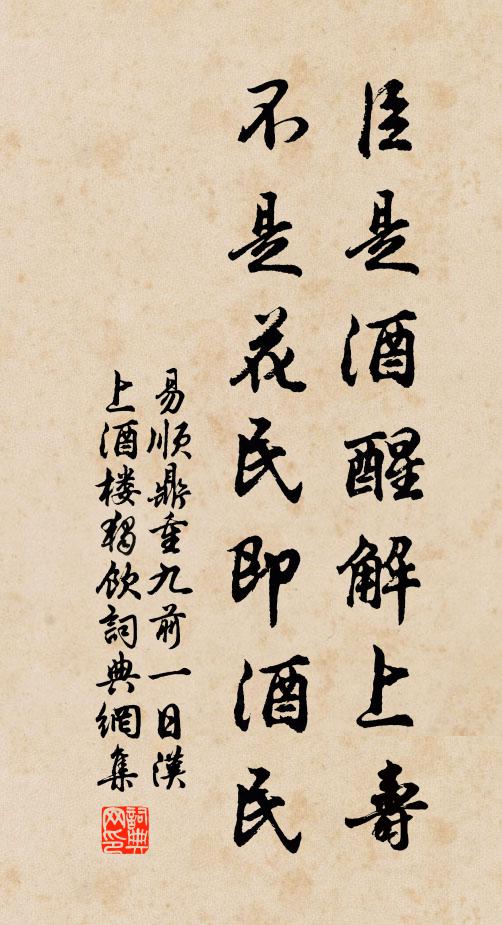 臣是酒醒解上壽
不是花民即酒民
易順鼎重九前一日漢
上酒楼獨飲詞典網集
詞典
网印